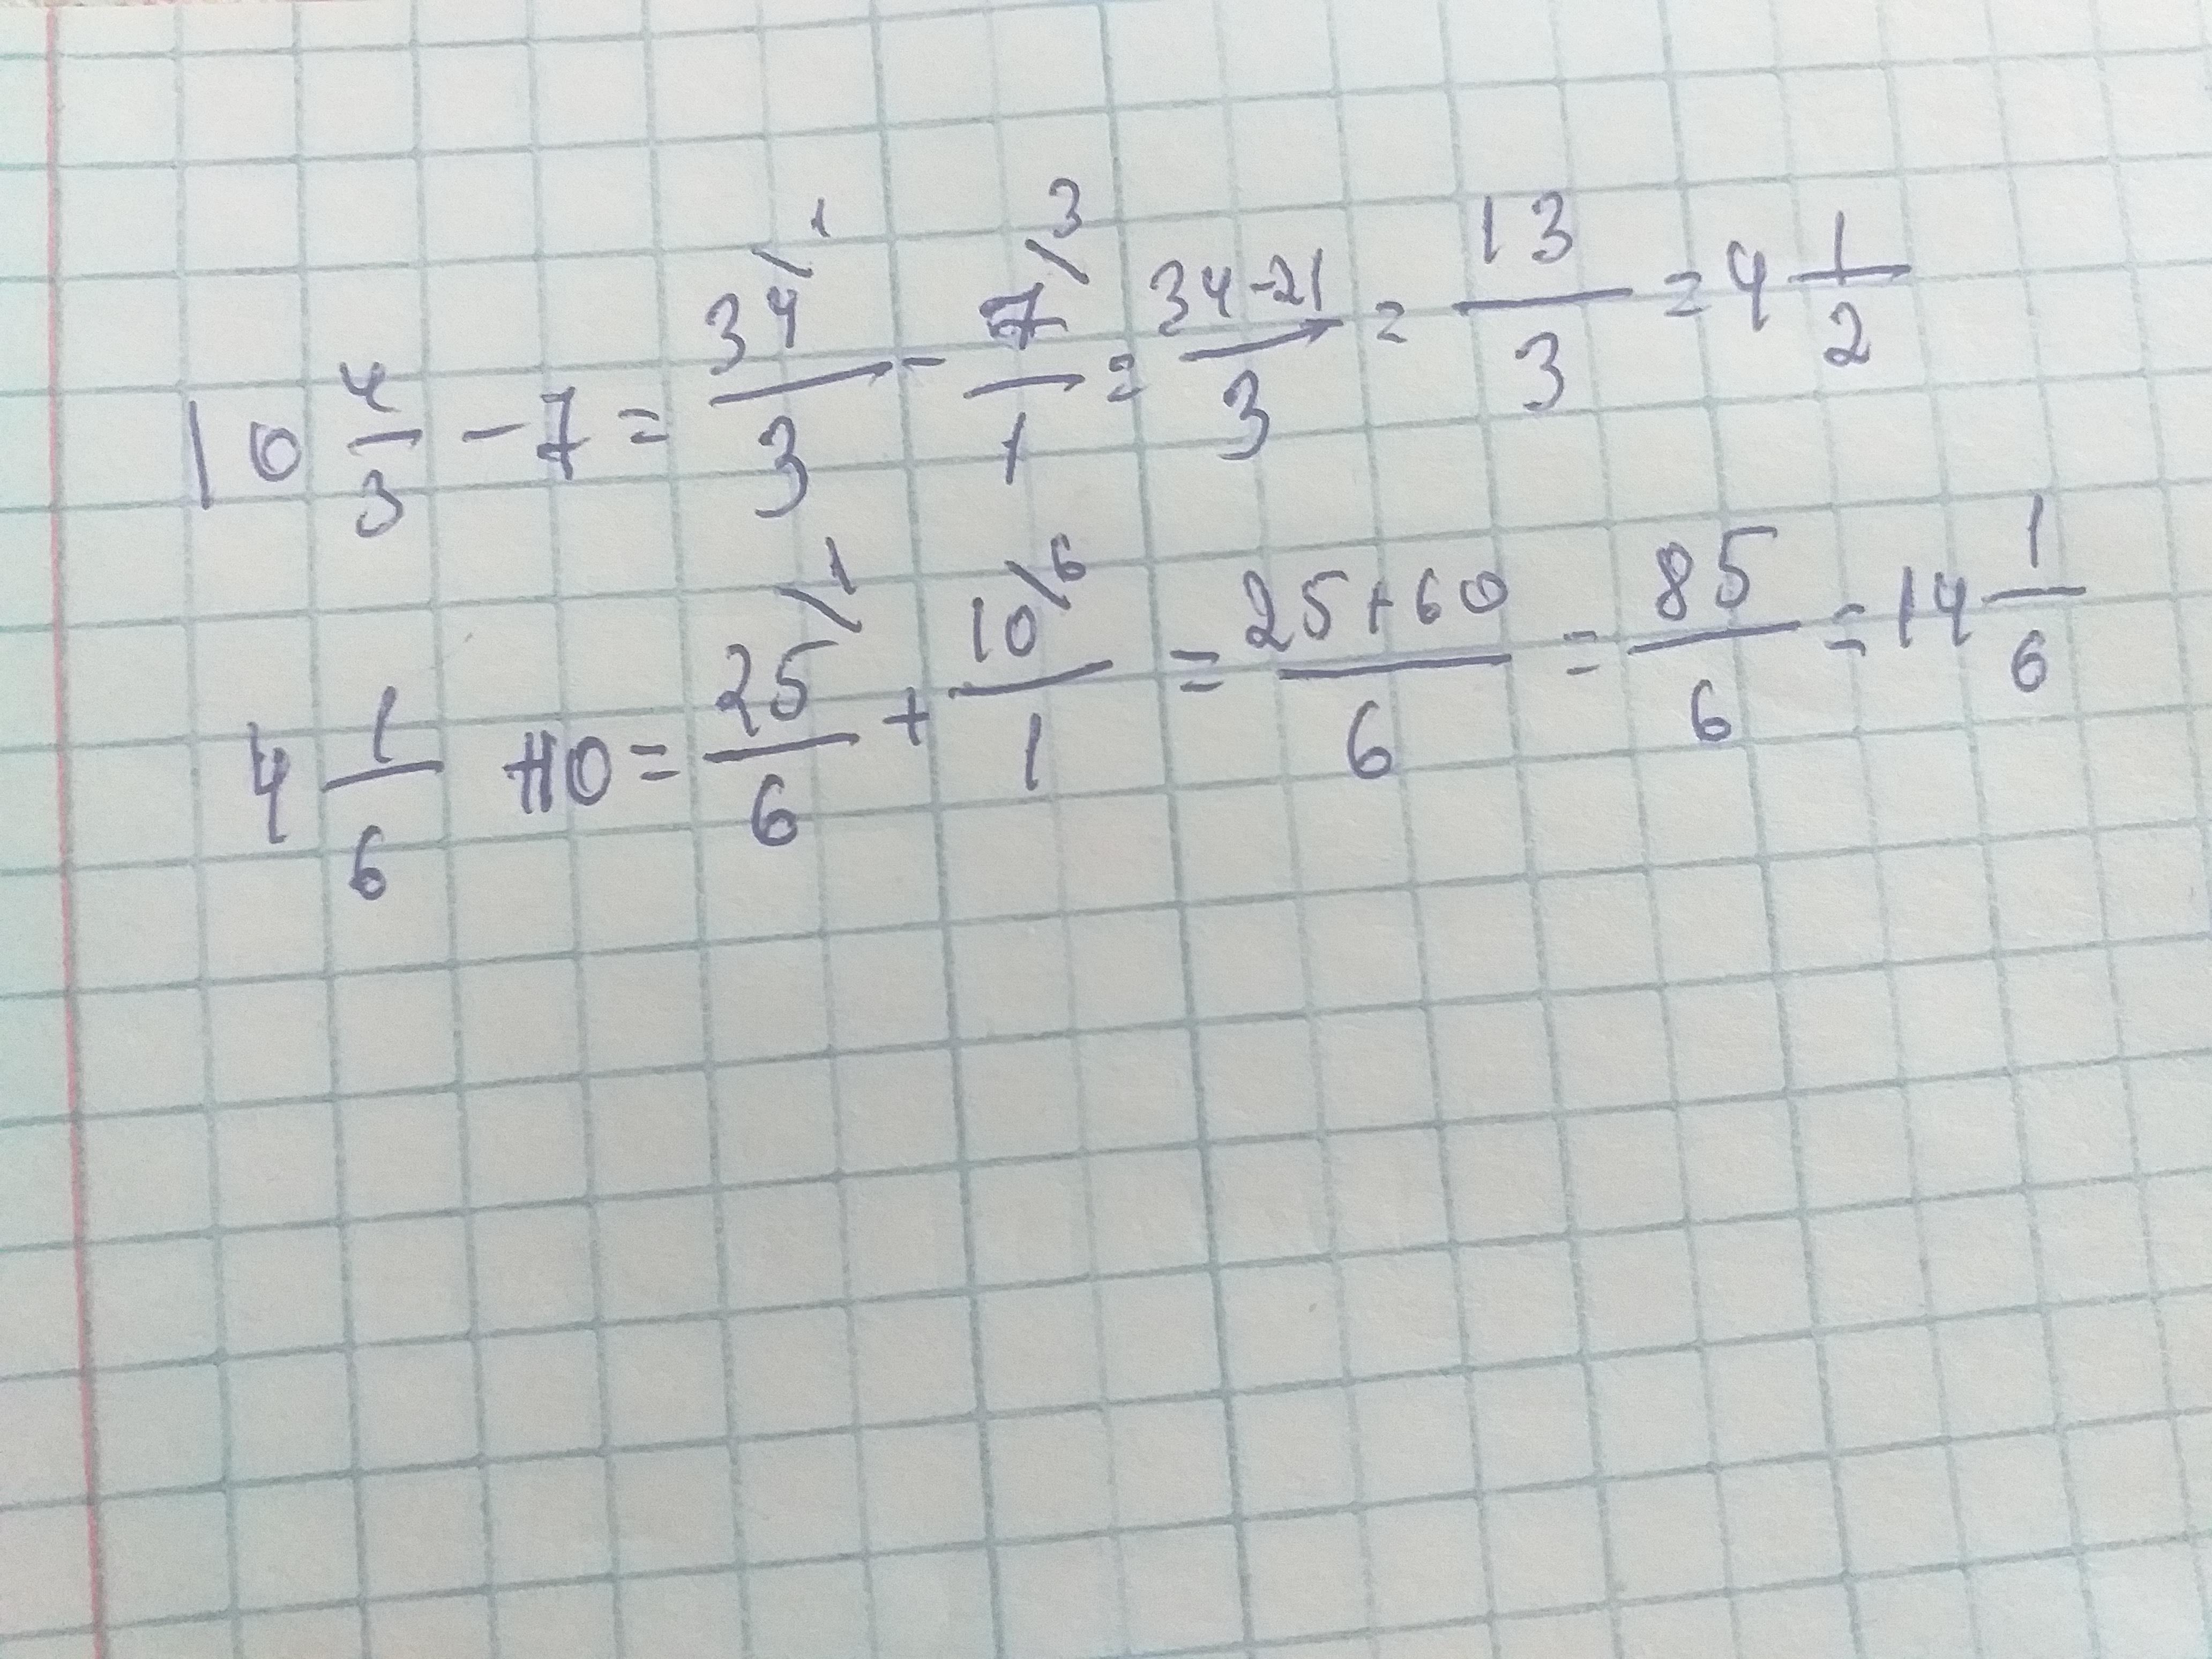 10 4/3 - 7 = 34\1/3 - 7\3/1 = 34-21/3 = 13/3 = 4 1/2
4 1/6 +10 = 25\1/6 + 10\6/1 = 25+60/6 = 85/6 = 14 1/6